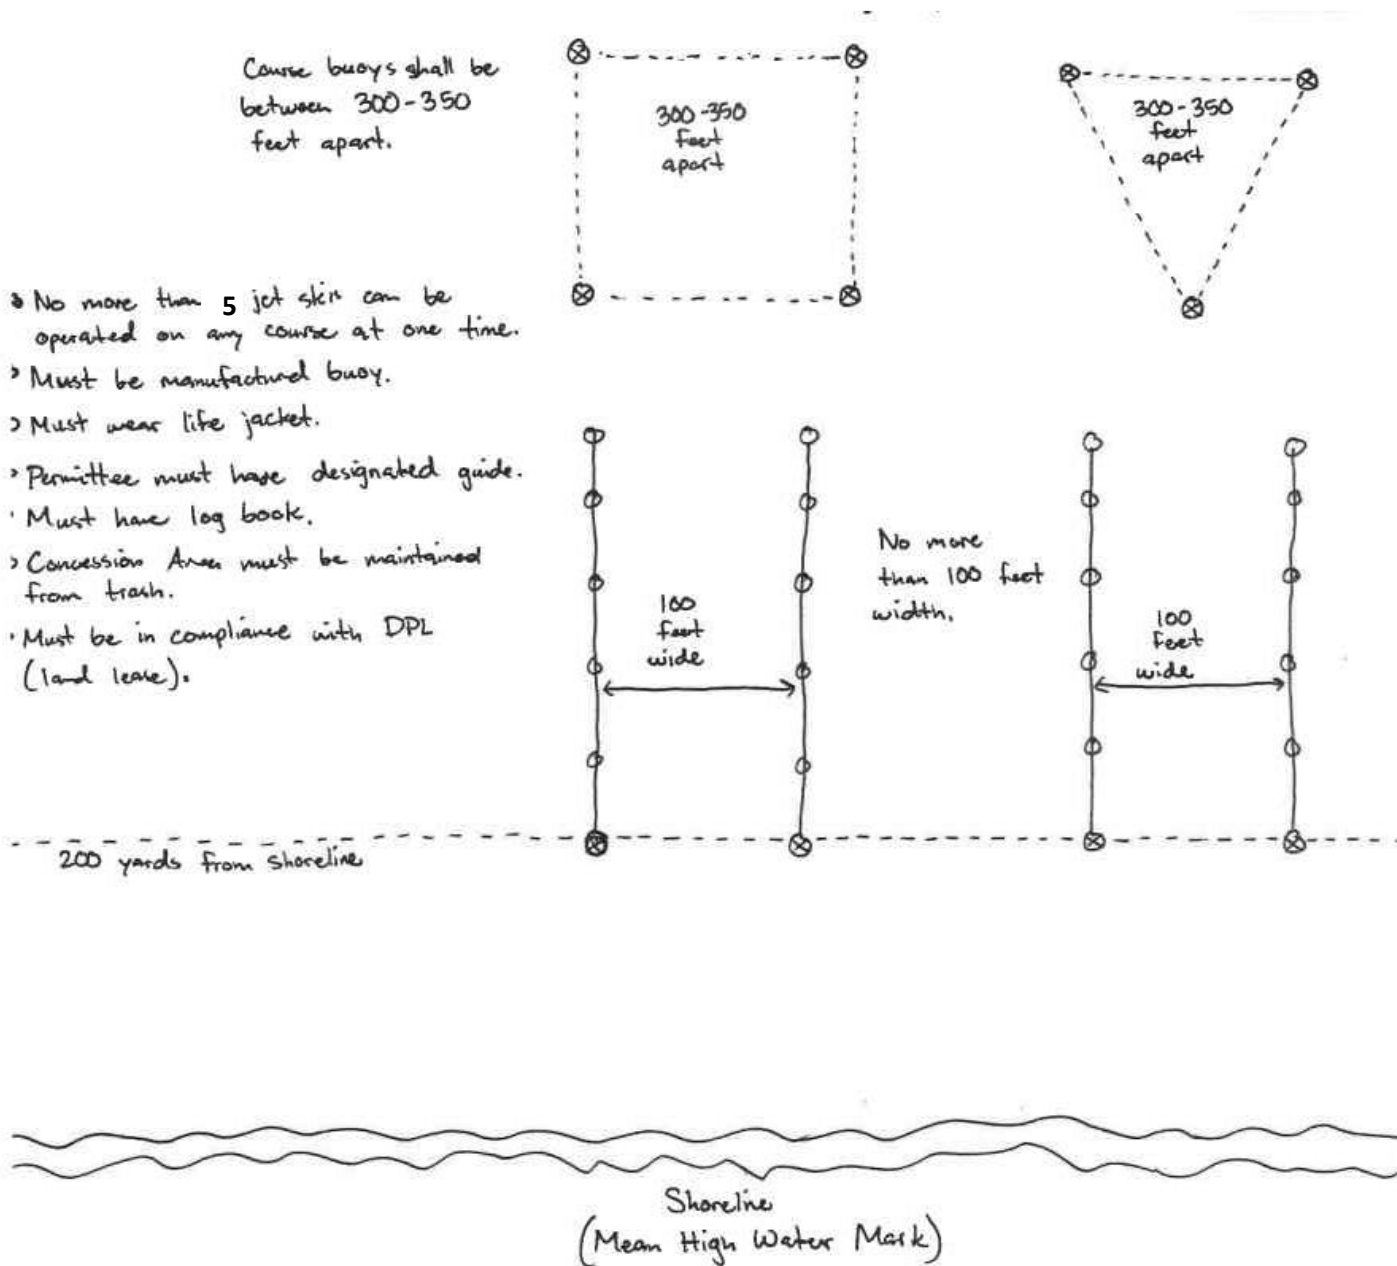 Course buoys shall be
between 300-350
feet apart.
300-350
feet
apart
300-350
feet
apart
No more than 5 jet skis can be
operated on any course at one time.
Must be manufactured buoy.
Must wear life jacket.
Permittee must have designated guide.
Must have log book.
Concession Area must be maintained
from trash.
Must be in compliance with DPL
(land lease).
100
feet
wide
No more
than 100 feet
width.
100
feet
wide
200 yards from shoreline
Shoreline
(Mean High Water Mark)